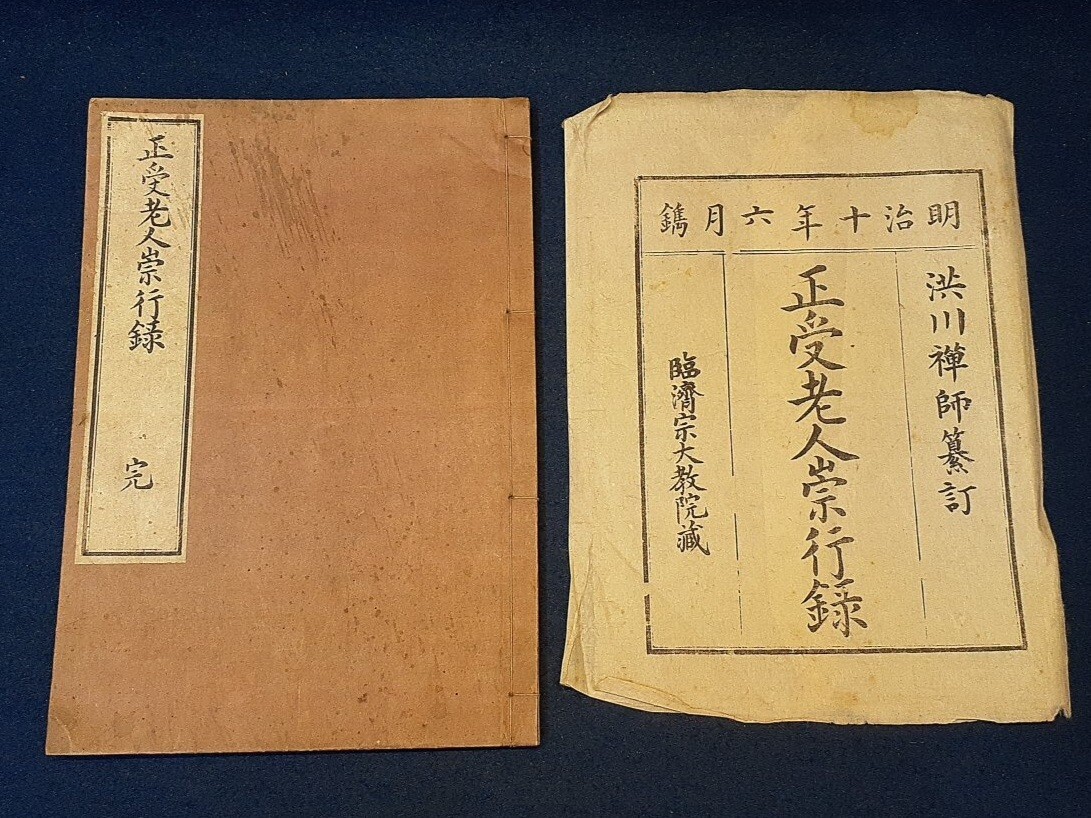 正受老人崇行録
完
明治十年六月鐫
洪川禪師纂訂
正受老人崇行録
臨濟宗大教院藏